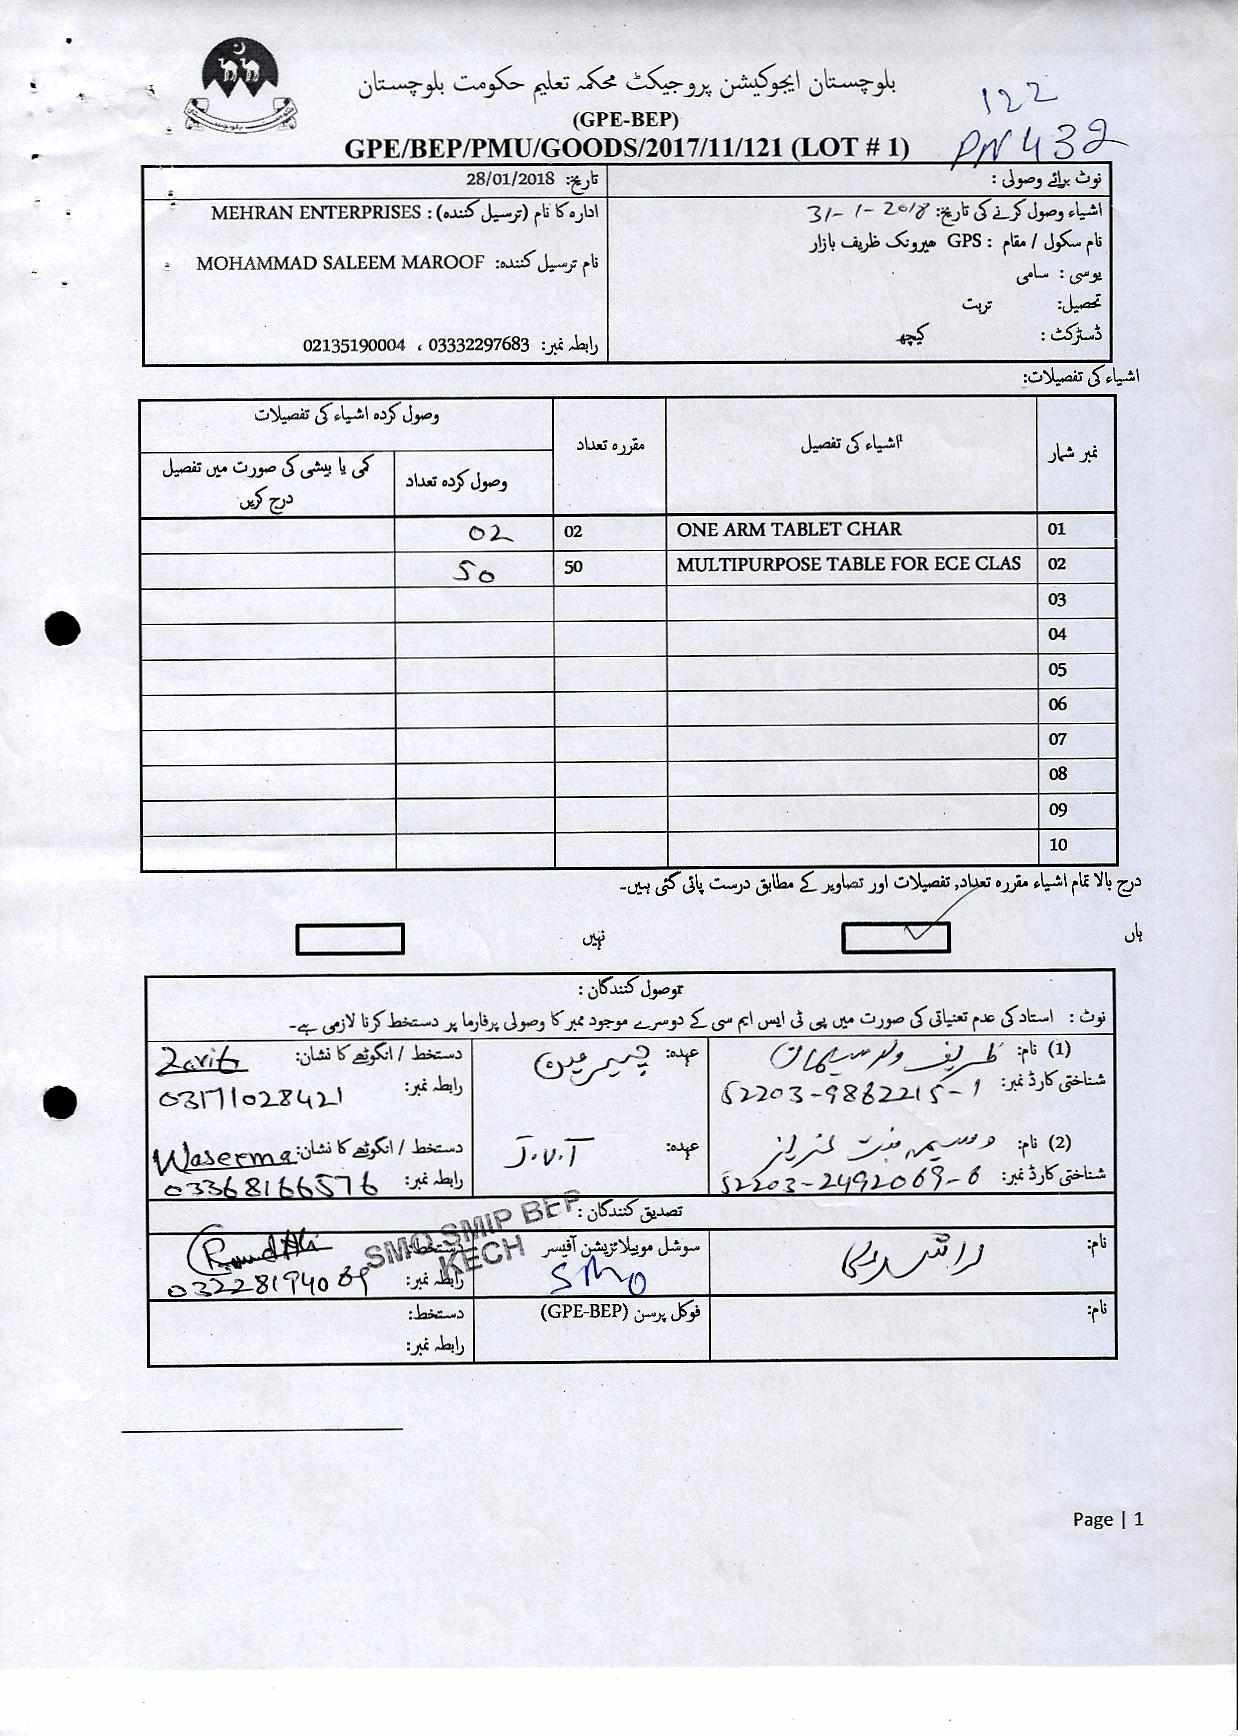 بلوچستان ایجوکیشن پروجیکٹ محکمہ تعلیم حکومت بلوچستان
(GPE-BEP)
122
GPE/BEP/PMU/GOODS/2017/11/121 (LOT # 1)
PN 432
نوٹ برائے وصولی :
تاریخ: 28/01/2018
اشیاء وصول کرنے کی تاریخ: 31-1-2018
ادارہ کا نام (ترسیل کنندہ) : MEHRAN ENTERPRISES
نام سکول / مقام : GPS ہیرونک ظریف بازار
نام ترسیل کنندہ: MOHAMMAD SALEEM MAROOF
یوسی : سامی
تحصیل: تربت
ڈسٹرکٹ : کیچ
رابطہ نمبر: 03332297683 ، 02135190004
اشیاء کی تفصیلات:
نمبر شمار
اشیاء کی تفصیل
مقررہ تعداد
وصول کردہ اشیاء کی تفصیلات
وصول کردہ تعداد
کمی یا بیشی کی صورت میں تفصیل درج کریں
01 ONE ARM TABLET CHAR 02 02
02 MULTIPURPOSE TABLE FOR ECE CLAS 50 50
03
04
05
06
07
08
09
10
درج بالا تمام اشیاء مقررہ تعداد, تفصیلات اور تصاویر کے مطابق درست پائی گئی ہیں۔
ہاں
نہیں
وصول کنندگان :
نوٹ : استاد کی عدم تعنیاتی کی صورت میں پی ٹی ایس ایم سی کے دوسرے موجود ممبر کا وصولی پرفارما پر دستخط کرنا لازمی ہے۔
(1) نام: ظریف ولد سلیمان
عہدہ: چیئرمین
دستخط / انگوٹھے کا نشان: Zarif
شناختی کارڈ نمبر: 52203-9862215-1
رابطہ نمبر: 03171028421
(2) نام: وسیمہ بنت
عہدہ: J.V.T
دستخط / انگوٹھے کا نشان: Waseema
شناختی کارڈ نمبر: 52203-2492069-6
رابطہ نمبر: 03368166576
تصدیق کنندگان :
SMO SMIP BEP
KECH
نام:
سوشل موبیلائزیشن آفیسر
SMO
دستخط:
رابطہ نمبر: 032281940
نام:
فوکل پرسن (GPE-BEP)
دستخط:
رابطہ نمبر:
Page | 1